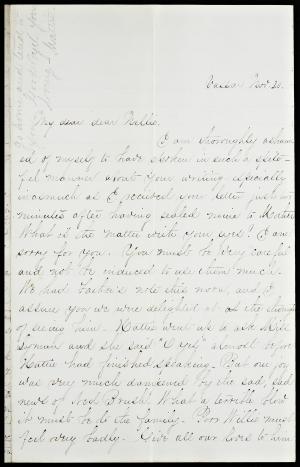 Vassar Nov. 20.
My dear dear Nellie.
I am thoroughly asham
ed of myself to have spoken in such a spite-
ful manner about your writing especially
inasmuch as I received your letter just
minutes after having sealed mine to Mattie
What is the matter with your eyes? I am
sorry for you. You must be very careful
and not be induced to use them much.
We had Father's note this noon, and I
assure you we were delighted at the thought
of seeing him. Hattie went up to ask Miss
Lyman and she said "O yes" almost before
Hattie had finished speaking. But our joy
was very much dampened by the sad, sad
news of Ned Brush. What a terrible blow
it must be to the family. Poor Willie must
feel very badly. Give all our loves to him